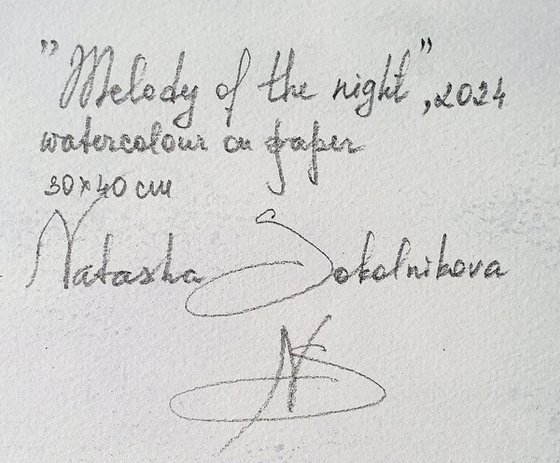 "Melody of the night", 2024
watercolour on paper
30x40 cm
Natasha Sokolnikova
NS